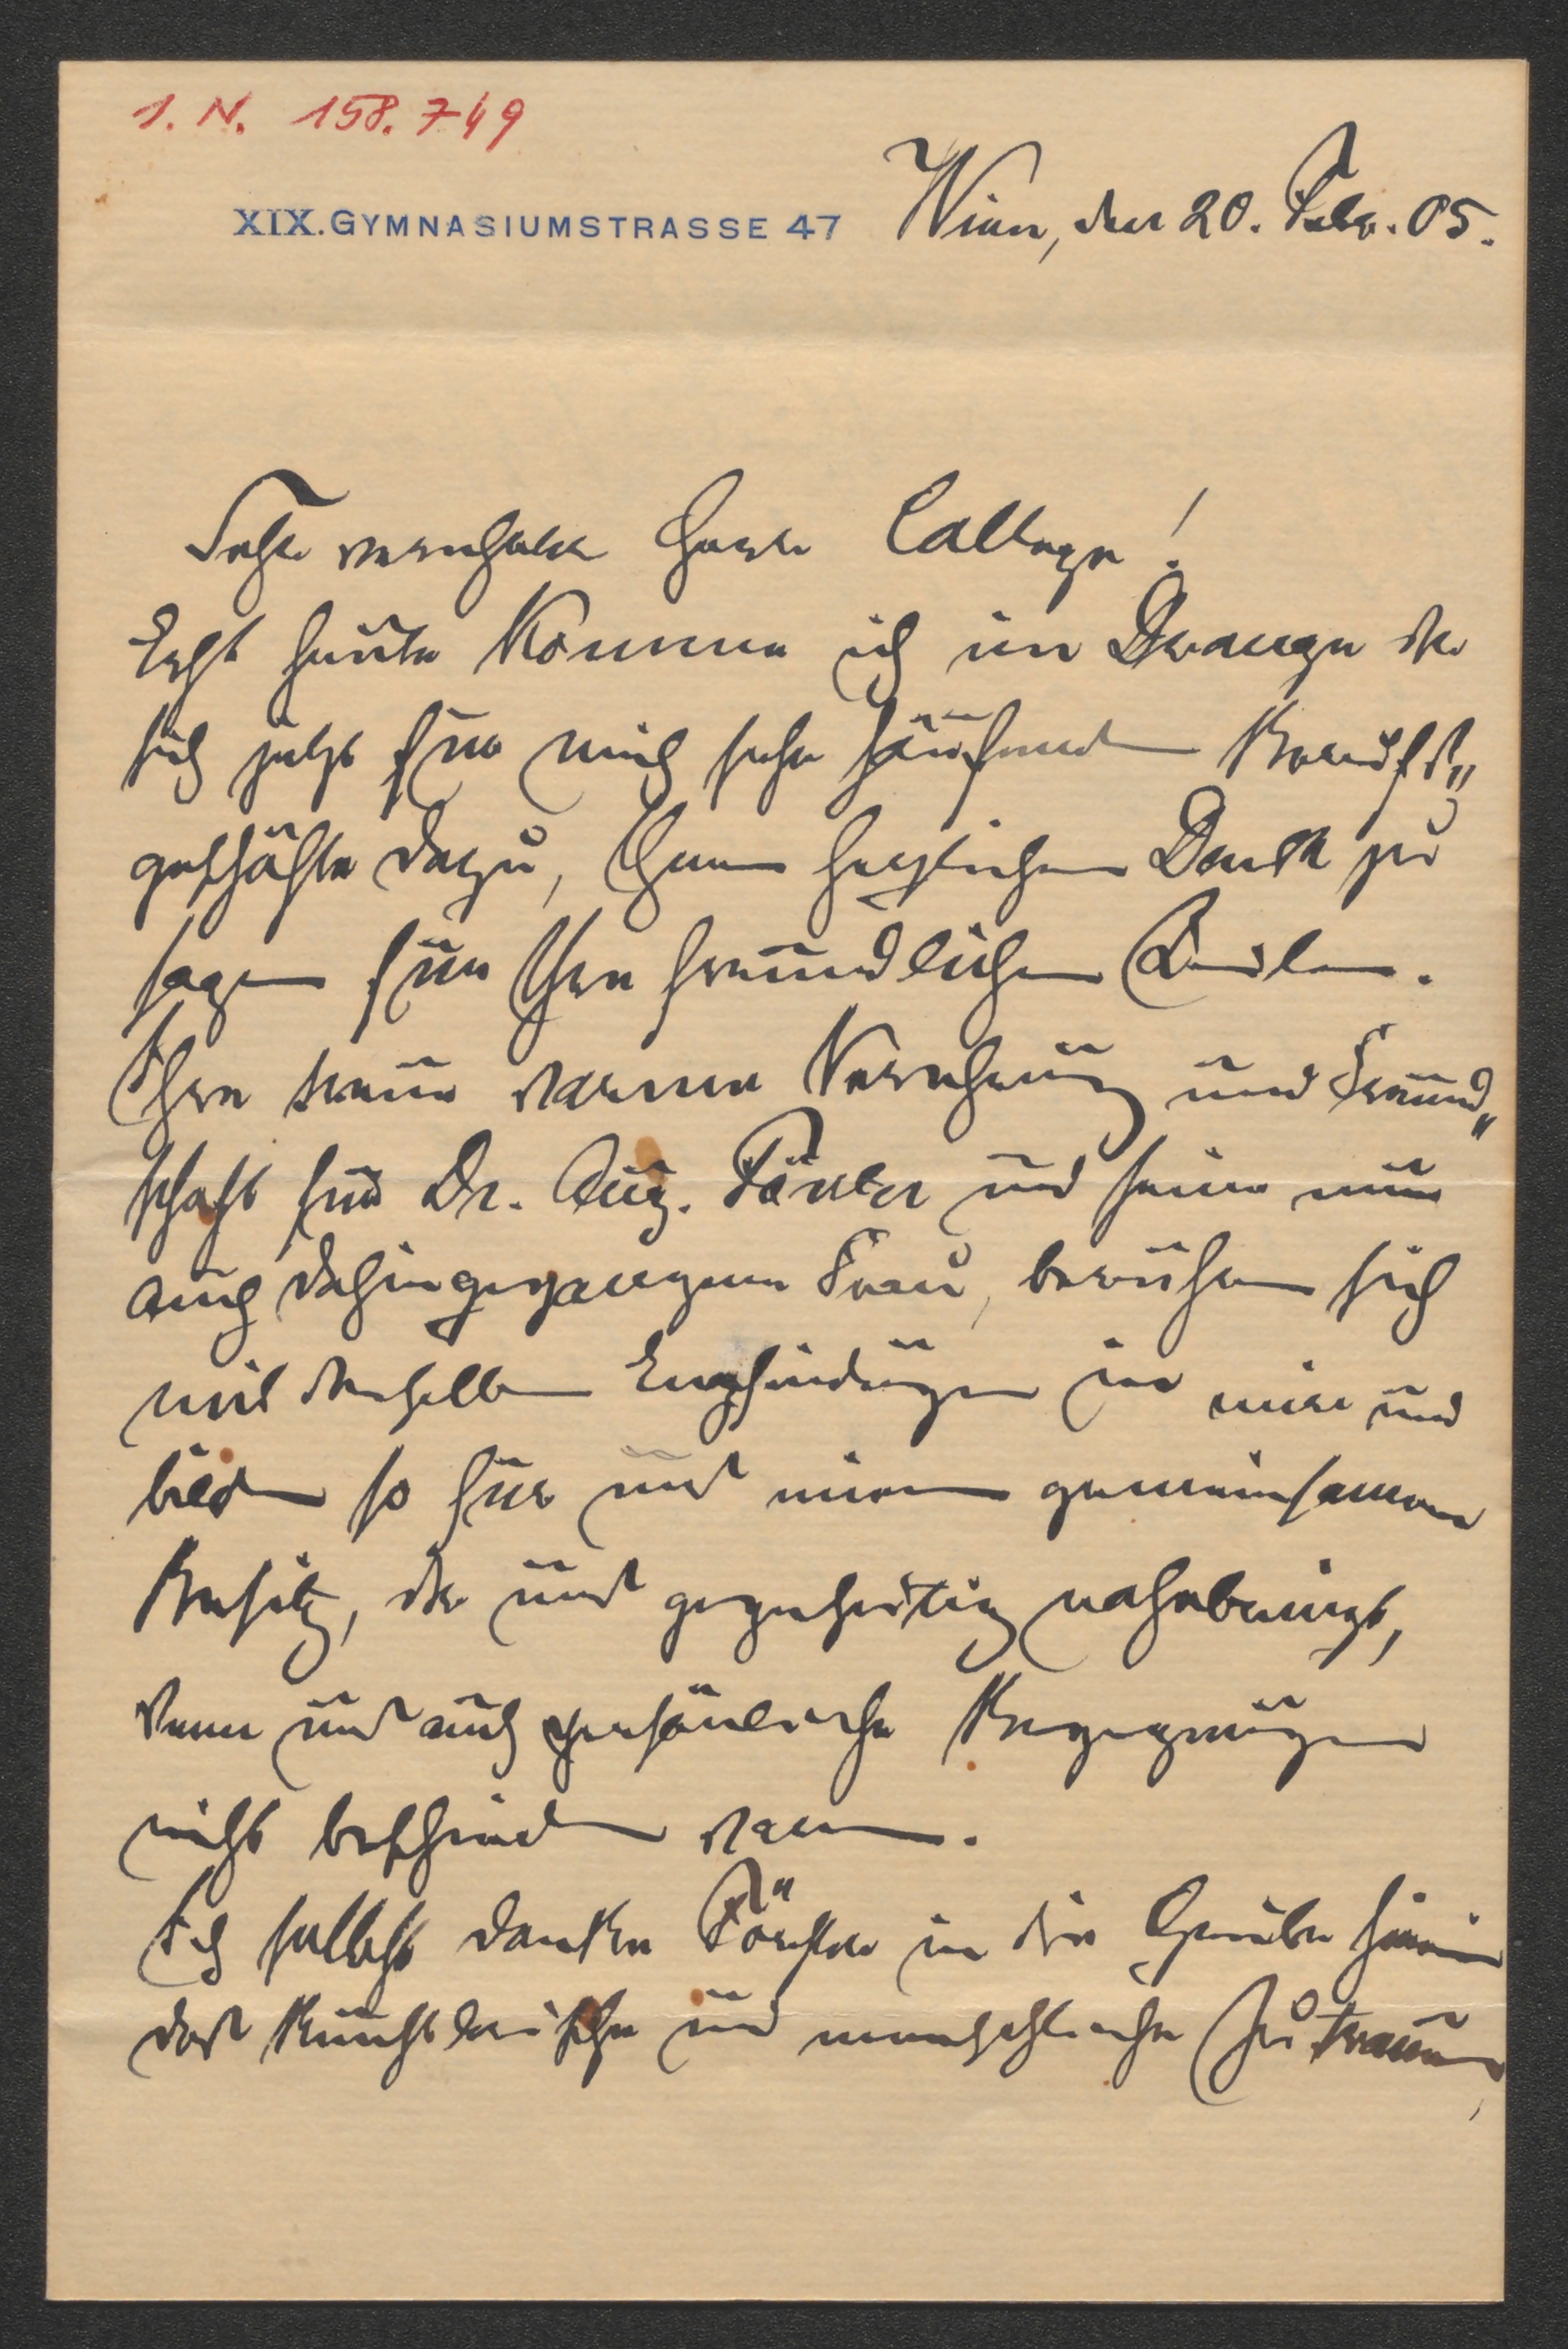 I. N. 158.749
XIX. GYMNASIUMSTRASSE 47 Wien, den 20. Febr. 05.
Sehr verehrter Herr College!
Erst heute komme ich im Drange der
sich jetzt für mich sehr häufenden Berufs„
geschäfte dazu, Ihnen herzlichen Dank zu
sagen für Ihre freundlichen Zeilen.
Ihre treue warme Verehrung und Freund„
schaft für Dr. Aug. Förster und seine nun
auch dahingegangene Frau, berühren sich
mit denselben Empfindungen in mir und
bilden so für uns einen gemeinsamen
Besitz, der uns gegenseitig nahebringt,
wenn uns auch persönliche Begegnungen
nicht beschieden waren.
Ich selbst danke Förster in die Grube hinein
das künstlerische und menschliche Zutrauen,